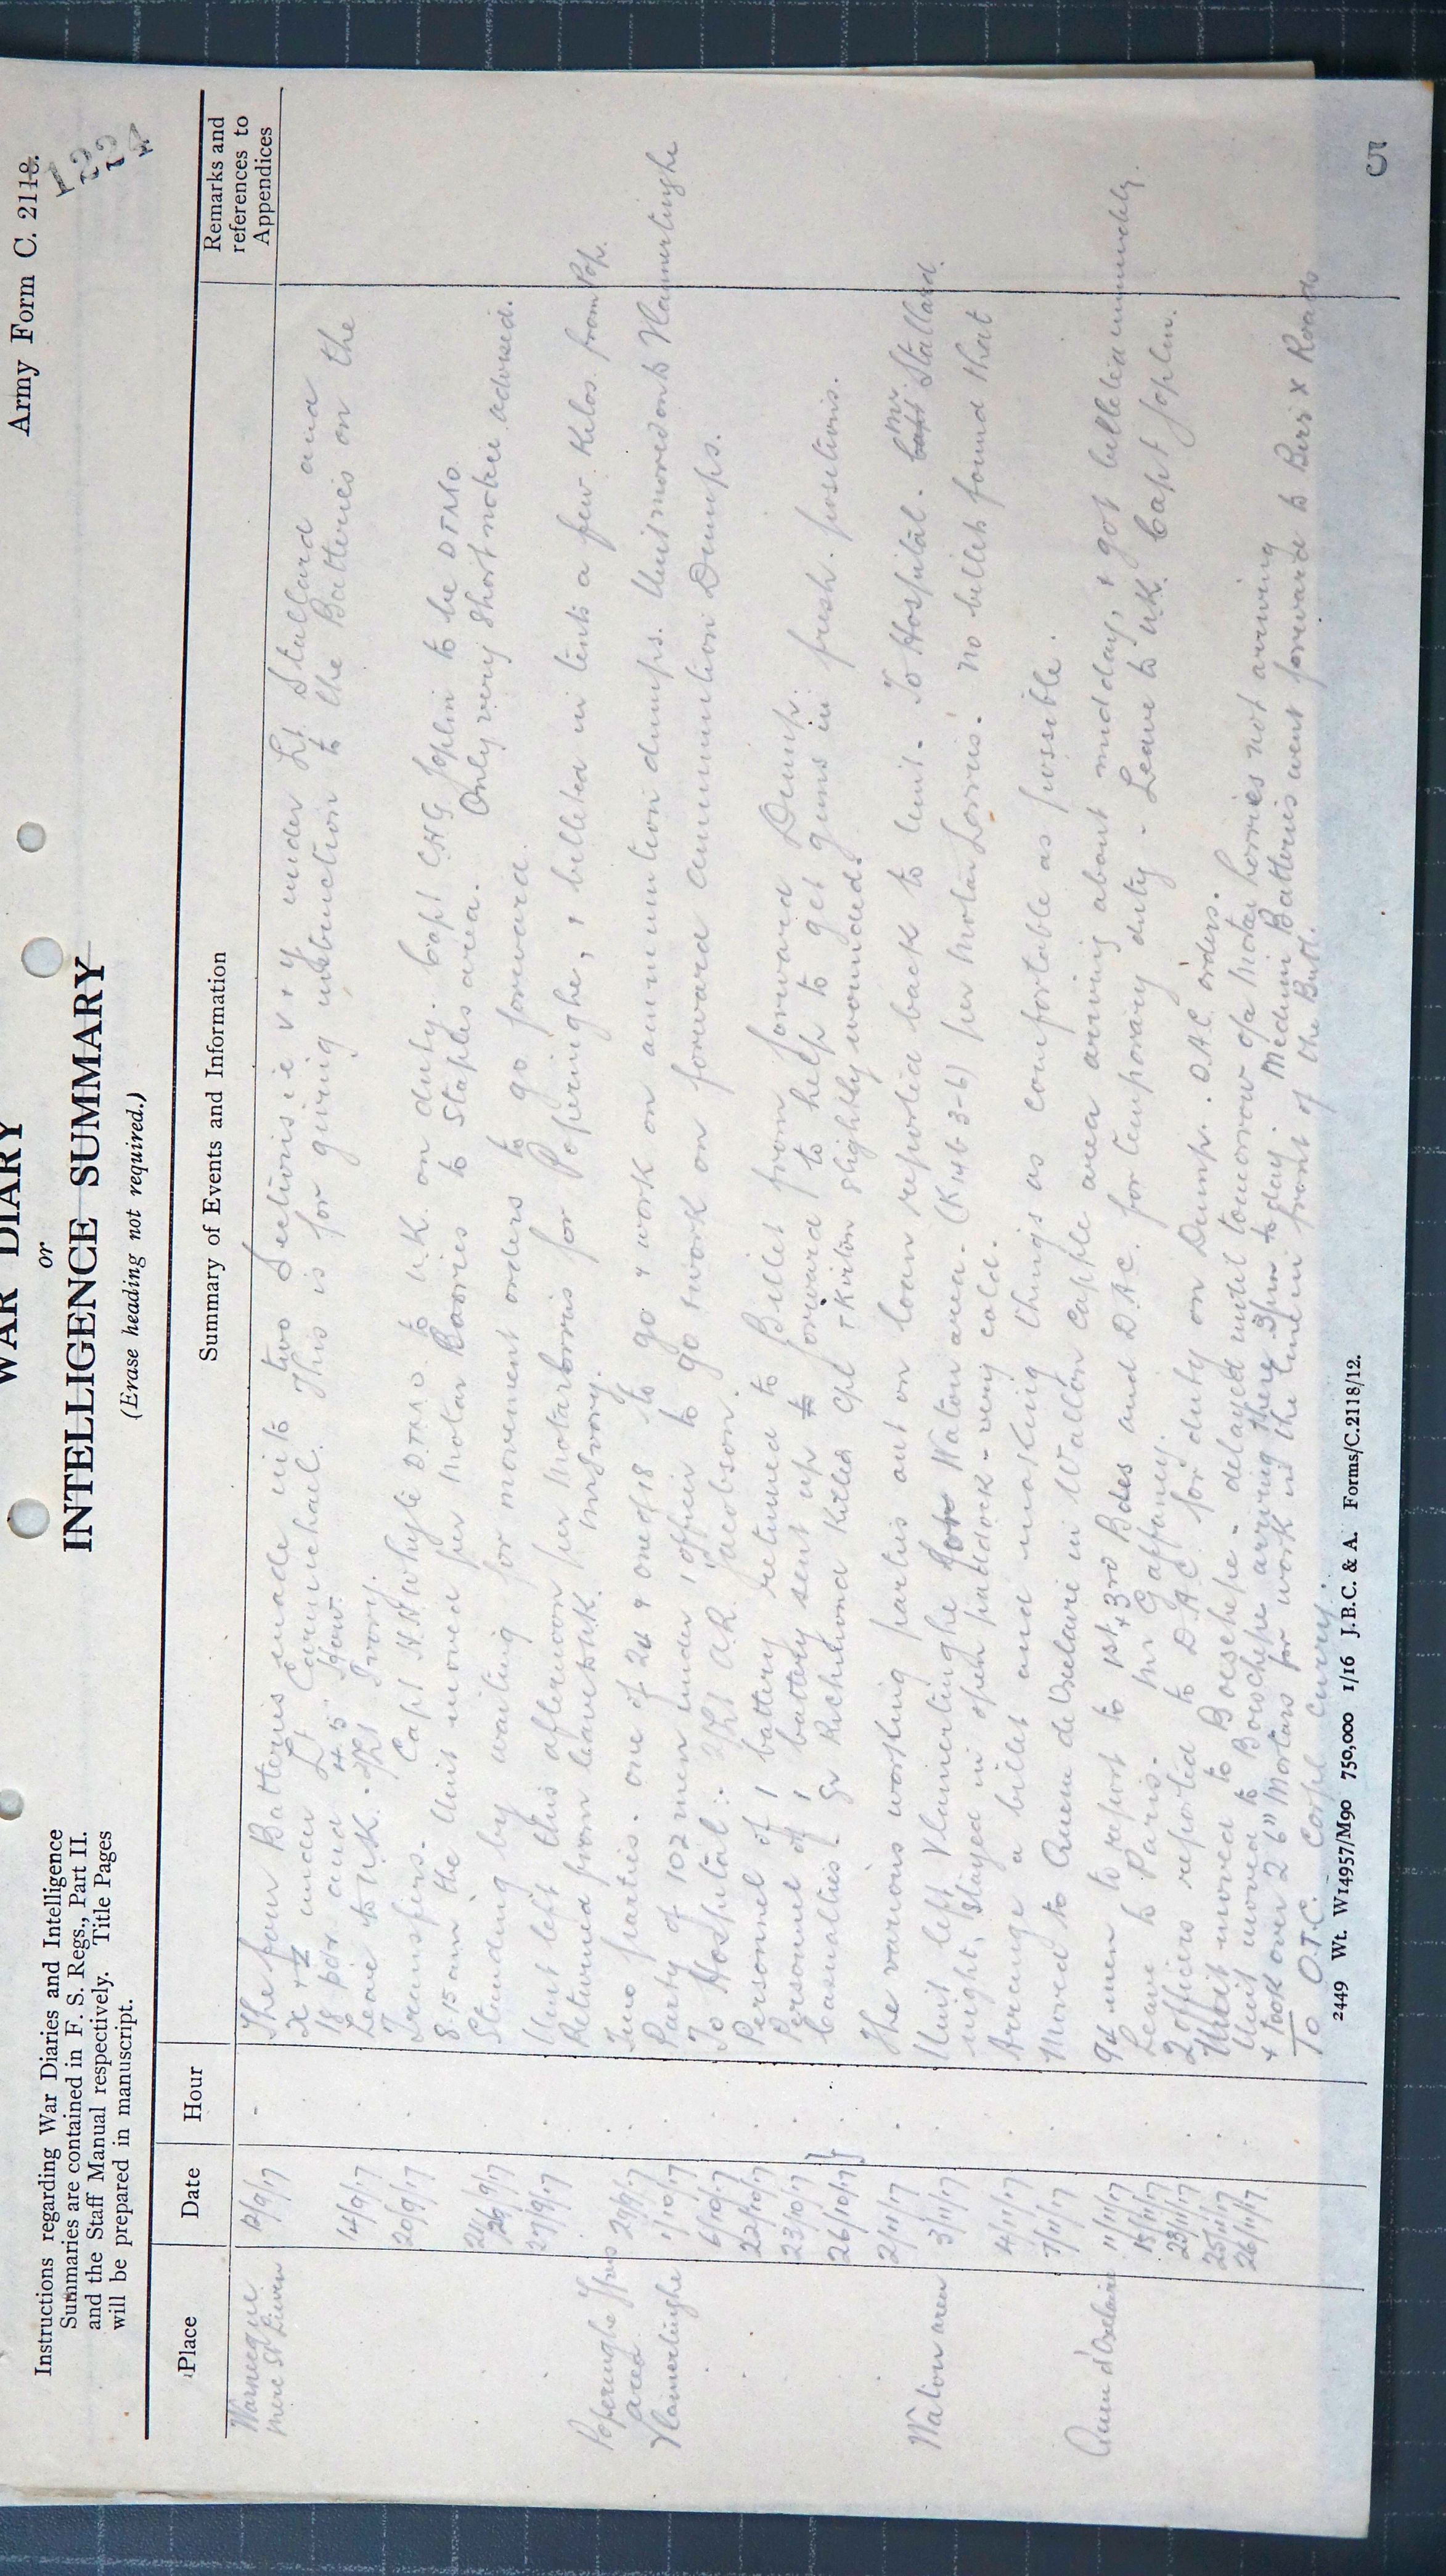 Army Form C. 2118.
1224
WAR DIARY
or
INTELLIGENCE SUMMARY
(Erase heading not required.)
Instructions regarding War Diaries and Intelligence
Summaries are contained in F. S. Regs., Part II.
and the Staff Manual respectively. Title Pages
will be prepared in manuscript.
Place Date Hour Summary of Events and Information Remarks and references to Appendices
12/9/17 - The four Batteries made into two Sections i.e. V + Y under Lt Stallard and
X + Z under Lt Carmichael. This is for giving instruction to the Batteries on the
18 pdr and 4.5" How.
14/9/17 Leave to U.K. - 2/Lt Ivory.
20/9/17 Transfers. Capt H.N. Whyte DTMO to U.K. on duty. Capt C.H.G. Joplin to be DTMO
8.15 am the Unit moved per Motor Lorries to Staples area. Only very short notice advised.
Standing by waiting for movement orders to go forward.
27/9/17 Unit left this afternoon per Motor Lorries for Poperinghe, & billeted in tents a few Kilos from Pop.
Returned from leave to U.K. Mr Ivory.
Poperinghe Ypres area 29/9/17 Two parties. One of 24 & one of 18 to go & work on ammunition dumps. Unit moved on to Vlamertinghe
Vlamertinghe 1/10/17 Party of 102 men under 1 officer to go & work on forward ammunition Dumps.
6/10/17 To Hospital :- 2/Lt A.R. Jacobson.
22/10/17 Personnel of 1 battery returned to Billet from forward Dump.
23/10/17 Personnel of 1 battery sent up to forward to help to get guns in fresh positions.
26/10/17 Casualties! Gr Richmond Killed Cpl Kirton slightly wounded.
2/11/17 The various working parties out on loan reported back to Unit. To Hospital. Capt Mr. Stallard.
Watou area 3/11/17 Unit left Vlamertinghe for Watou area. (K.14 b 3-6) per Motor Lorries. No billets found that
night, stayed in open paddock - very cold.
4/11/17 Arrange a billet and making things as comfortable as possible.
7/11/17 Moved to Quem de Oxelaire in Wallon Capple area arriving about midday, & got billeted immediately.
Quem d'Oxelaire 11/11/17 94 men to report to 1st + 3rd Bdes and D.A.C. for temporary duty - Leave to U.K. Capt Joplin.
15/11/17 Leave to Paris. Mr Gaffaney.
23/11/17 2 Officers reported to D.A.C. for duty on Dump. D.A.C. orders.
25/11/17 Unit moved to Boeschepe - delayed until tomorrow o/a Motor Lorries not arriving
26/11/17 Unit moved to Boeschepe arriving there 3 pm to day. Medium Batteries went forward to Birr X Roads
+ took over 2 6" Mortars for work in the line in front of the Butt.
To O.T.C. Corpl Curry.
2449 Wt. W14957/M90 750,000 1/16 J.B.C. & A. Forms/C.2118/12.
5